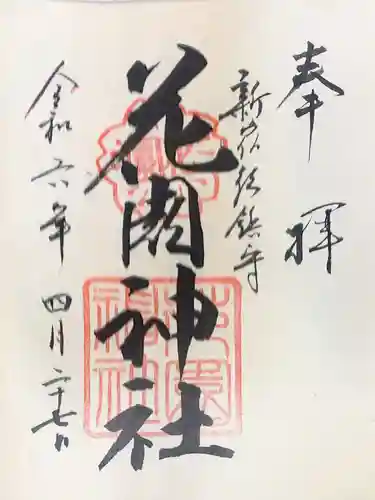 奉拝
新宿総鎮守
花園神社
令和六年 四月二十七日
花園神社